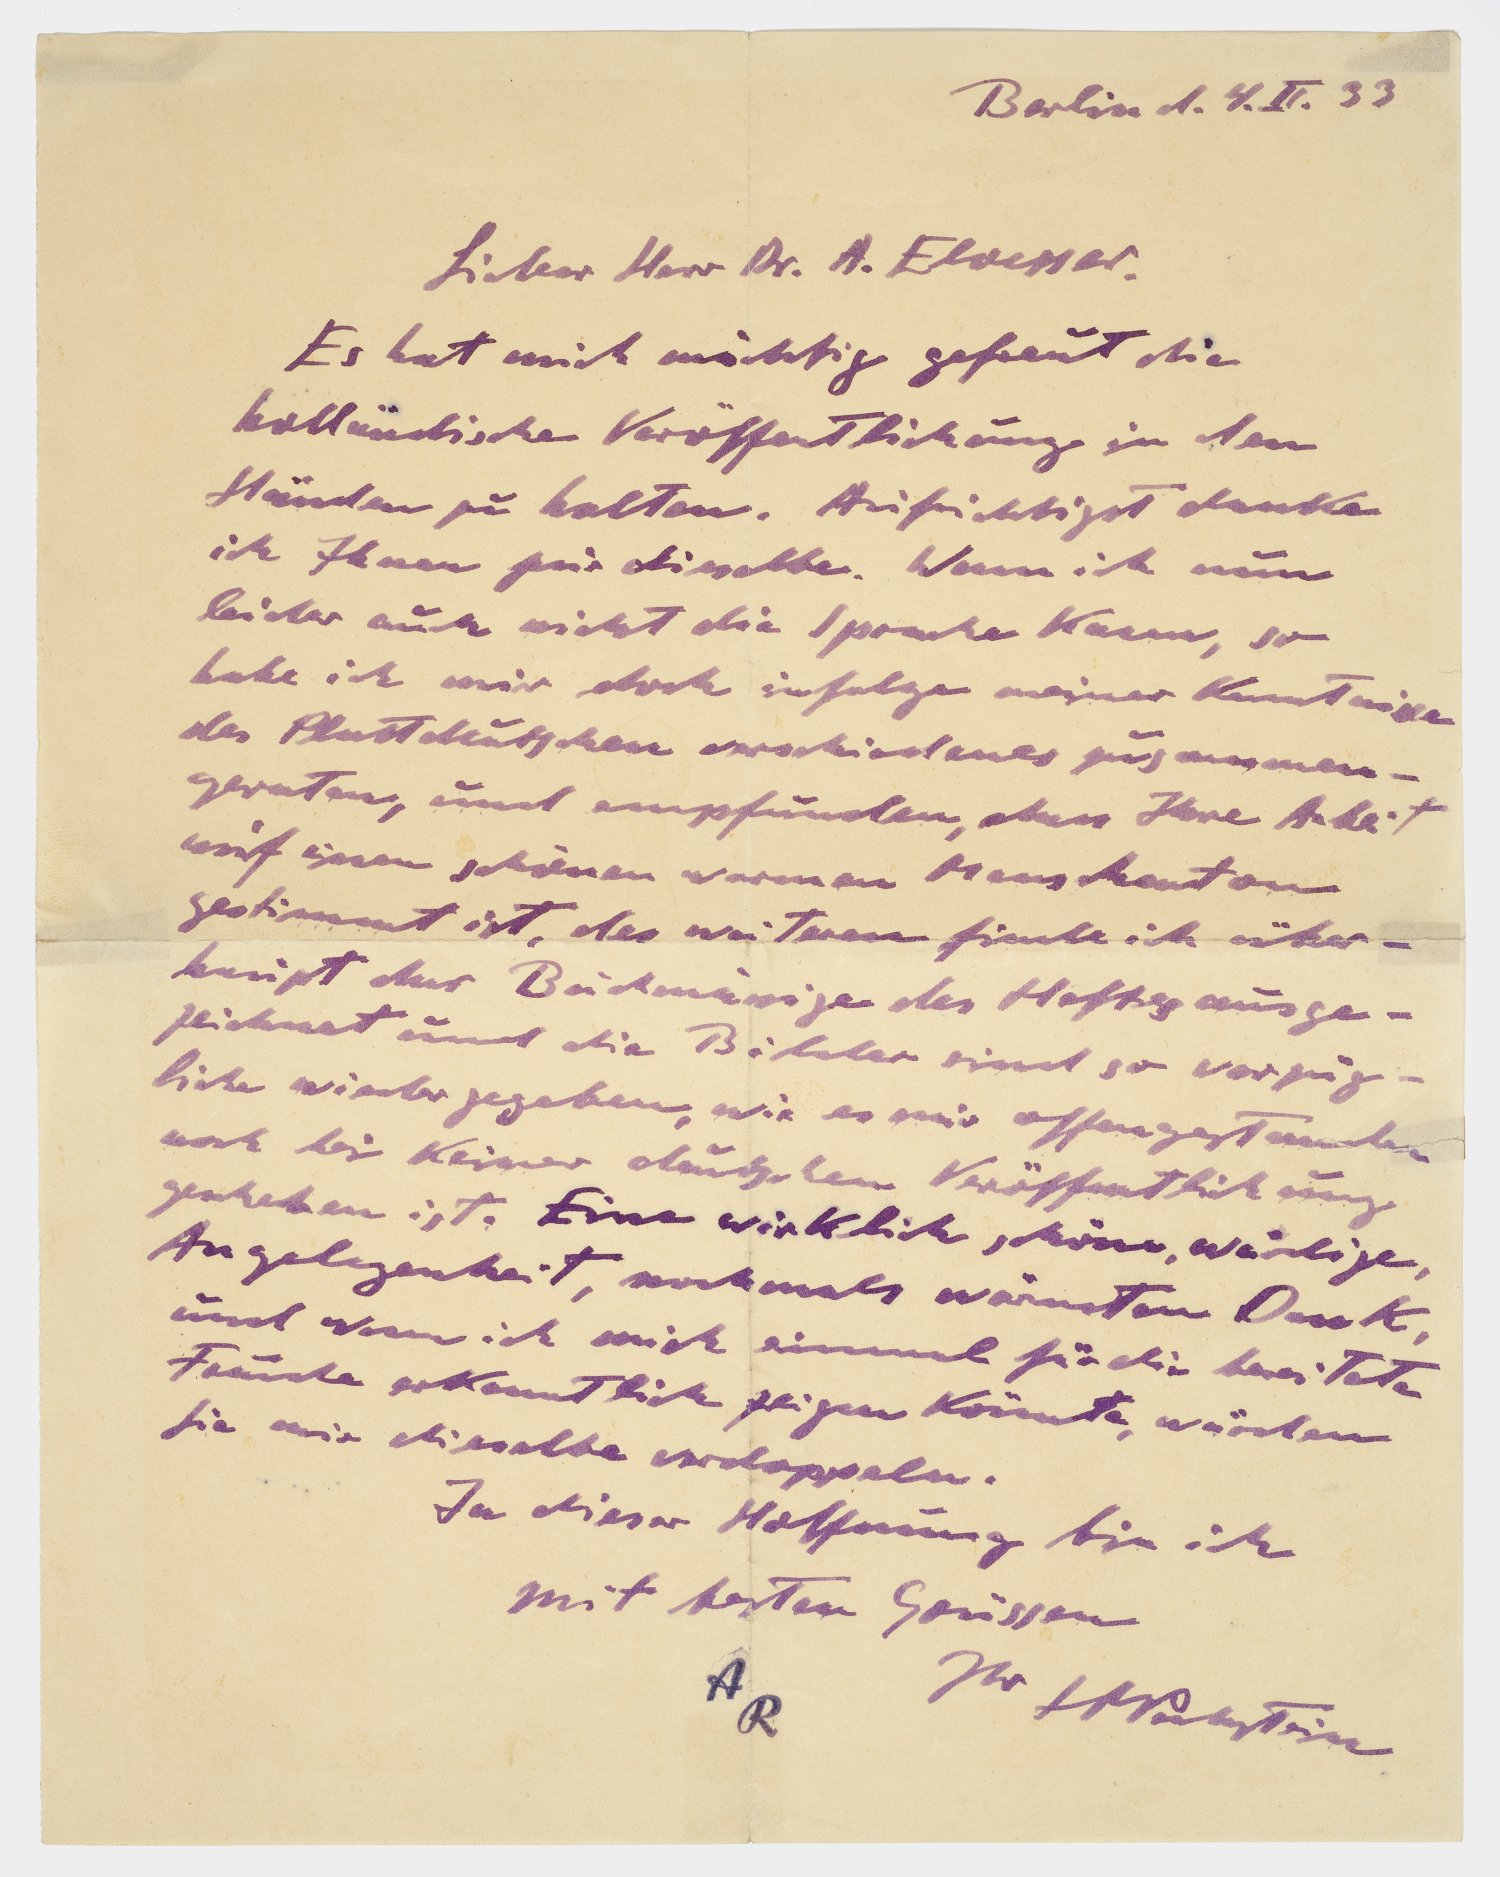 Berlin d. 4. II. 33
Lieber Herr Dr. A. Eloesser.
Es hat mich mächtig gefreut die
holländische Veröffentlichung in den
Händen zu halten. Aufrichtigst danke
ich Ihnen für dieselbe. Wenn ich nun
leider auch nicht die Sprache kann, so
habe ich mir doch infolge meiner Kenntnisse
des Plattdeutschen verschiedenes zusammen-
geraten, und empfunden, dass Ihre Arbeit
auf einen schönen warmen Menschenton
gestimmt ist, des weiteren finde ich über-
haupt das Buchmässige des Heftes ausge-
zeichnet und die Bilder sind so vorzüg-
lich wiedergegeben, wie es mir offengestanden
noch bei keiner deutschen Veröffentlichung
geschehen ist. Eine wirklich schöne, würdige,
Angelegenheit, nochmals wärmsten Dank,
und wenn ich mich einmal für die bereitete
Freude erkenntlich zeigen könnte, würden
Sie mir dieselbe verdoppeln.
In dieser Hoffnung bin ich
mit besten Grüssen
Ihr HMPechstein
A
R